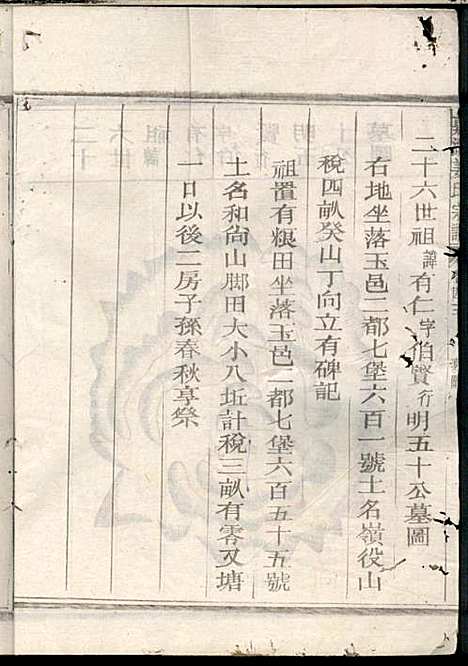 二十六世祖諱有仁字伯賢行明五十公墓圖
右地坐落玉邑二都七堡六百一號土名嶺役山
稅四畝癸山丁向立有碑記
祖置有糧田坐落玉邑二都七堡六百五十五號
土名和尚山脚田大小八坵計稅三畝有零又塘
一口以後二房子孫春秋享祭
氏宗譜